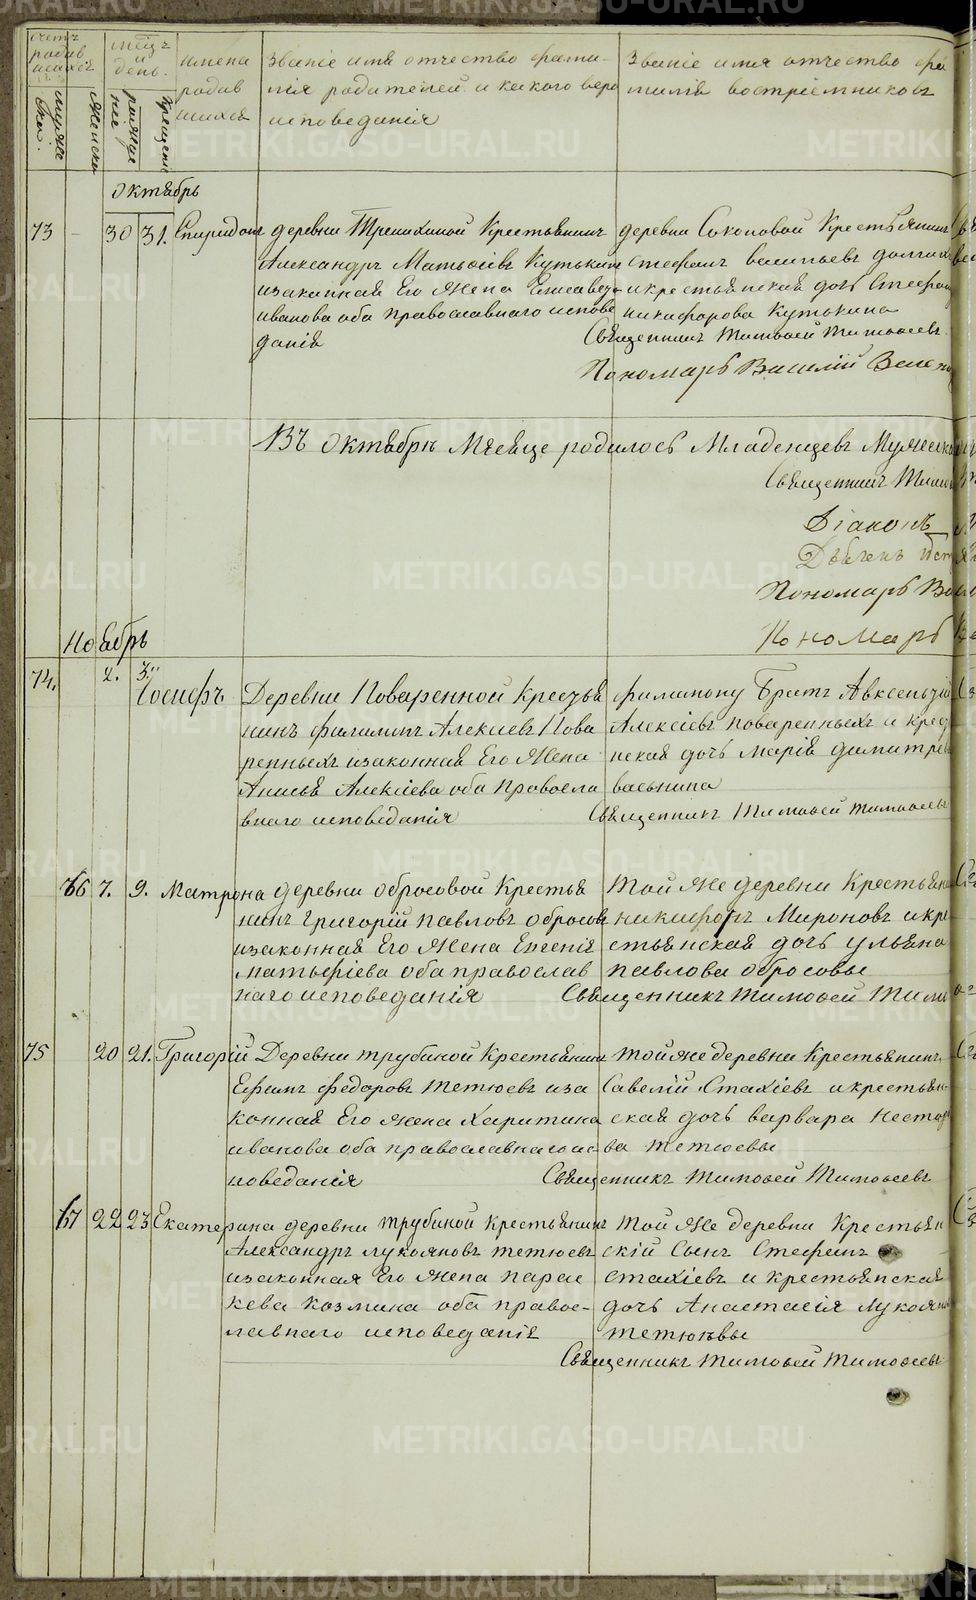 METRIKI.GASO-URAL.RU
Счетъ родив
мѣсцъ и день.
имена родив шихся
Званіе имя отчество фами-
лія родителей и какого веро
исповеданія
Званіе имя отчество фа
милія воспріемниковъ
мужеска. женска рожденіе крещеніе
Октябрь
73 - 30 31. Спиридонъ
деревни Трениxиной Крестьянинъ
Александръ Матьвѣевъ Кутькинъ
и законная Его Жена Елисавета
иванова оба православнаго испове
данія
деревни Соколовой Крестьянинъ
Стефанъ васильевъ долгихъ
и крестьянская дочь Стефан
никифорова Кутькина
Священникъ Тимофей Тимофеевъ
Пономарь Василій
Въ Октябрѣ Мѣсяце родилось Младенцевъ Мужеска
Священникъ Тим
Діаконъ
Пономарь Ва
Пономарь
Ноябрь
74. 2. 3. Іосифъ
Деревни Поваренной Крестья
нинъ филипъ Алексіевъ Пова
ренныхъ и законная Его Жена
Анисья Алексіева оба Правосла
внаго исповеданія
филипону Братъ Авксентій
Алексіевъ Поваренныхъ и крес
нская дочь Марія димитрева
васькина
Священникъ Тимофей Тимофеевъ
66 7. 9. Матрона
деревни обросовой Крестья
нинъ Григорій Павловъ обросовъ
и законная Его Жена Евгенія
Матьфіева оба православ
наго исповеданія
Той же деревни Крестьянинъ
никифоръ Мироновъ и кре
стьянская дочь ульяна
Павлова обросовы
Священникъ Тимофей Тими
75 20 21. Григорій
Деревни трубиной Крестьянинъ
Ефимъ федоровъ Тетюевъ и за
конная Его жена Харитина
иванова оба православнаго ис
поведанія
той же деревни Крестьянинъ
Савелій Стахіевъ и крестьян
ская дочь варвара нестор
ва Тетюевы
Священникъ Тимофей Тимофеевъ
67 22 23 Екатерина
деревни трубиной крестьянинъ
Александръ лукояновъ тетюевъ
и законная Его Жена парас
кева козмина оба правос-
лавнаго исповеданія
той же деревни Крестьян
скій Сынъ Стефанъ
стахіевъ и крестьянская
дочь Анастасія лукоян
тетюевы
Священникъ Тимофей Тимофеевъ